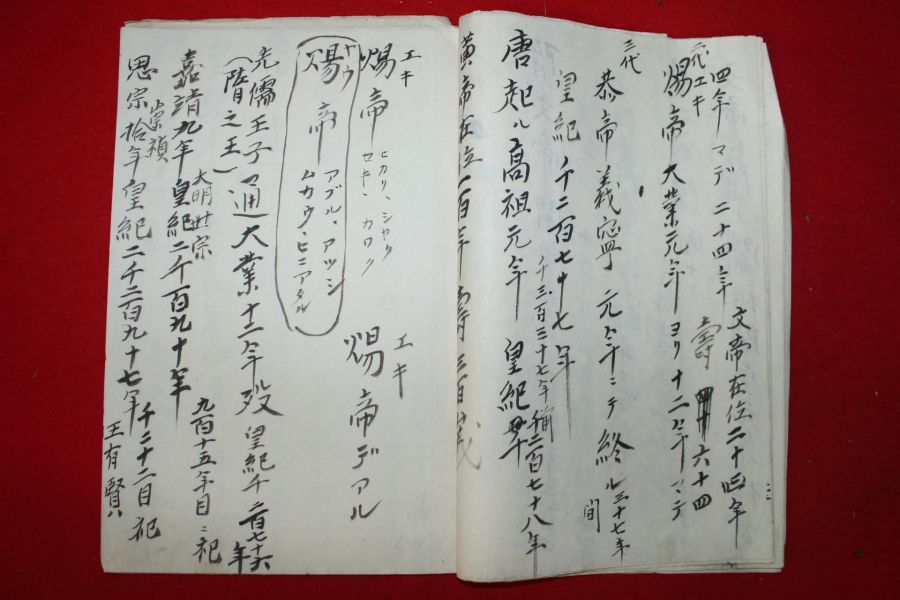 四年マデ二十四年
文帝在位二十四年
壽 六十四
二代エキ
煬帝大業元年ヨリ十二年マデ
三代
恭帝義寧元年ニテ終ル三十七年間
皇紀千二百七十七年
唐起ル高祖元年 皇紀千二百七十八年
黄帝在位百年 壽三百歳
エキ
煬帝 ヒカリ、シヤク
セキ、カワク
ヤウ
煬帝 アブル、アツシ
ムカウ、ヒニアタル
エキ
煬帝デアル
先儒王子通大業十二年歿 皇紀千二百七十六年
(隋之王)
大明世宗
嘉靖九年 皇紀二千百九十年 九百十五年目ニ祀
崇禎
思宗拾年皇紀二千二百九十七年 千二十二目祀
王有賢ハ